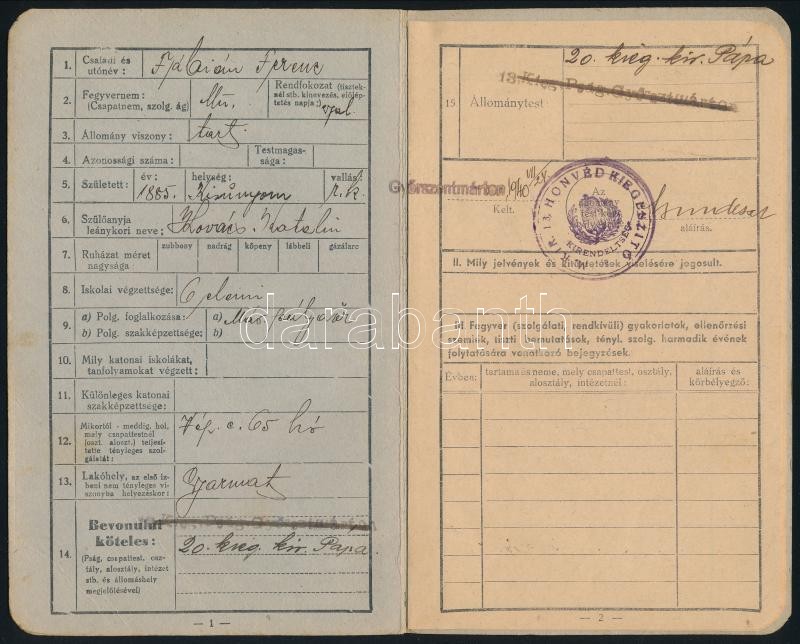 1. Családi és utónév : Fábián Ferenc
2. Fegyvernem : (Csapatnem, szolg. ág) Mű.
Rendfokozat (tisztek-
nél stb. kinevezés, előlép-
tetés napja:)
3. Állomány viszony : tart.
4. Azonossági száma :
Testmagas-
sága :
5. Született : év : 1885. helység: vallás: r. k.
6. Szülőanyja
leánykori neve : Kovács Katalin
7. Ruházat méret
nagysága
zubbony nadrág köpeny lábbeli gázálarc
8. Iskolai végzettsége: 6 elemi
9. a) Polg. foglalkozása: a)
b) Polg. szakképzettsége: b)
10. Mily katonai iskolákat,
tanfolyamokat végzett :
11. Különleges katonai
szakképzettsége:
12. Mikortól - meddig, hol,
mely csapattestnél
(oszt. aloszt.) teljesí-
tette tényleges szol-
gálatát:
Nép. c. 65 hó
13. Lakóhely, az első íz-
beni nem tényleges vi-
szonyba helyezéskor:
Gyarmat
14. Bevonulni
köteles:
(Pság, csapattest, osz-
tály, alosztály, intézet
stb. és állomáshely
megjelölésével)
20. kieg. kir. Pápa
— 1 —
20. kieg. kir. Pápa
13. Kieg. Pság. Győrszentmárton
15 Állománytest
Győrszentmárton 1940 VII
Kelt.
Az
M. KIR. 13. HONVÉD KIEGÉSZÍTŐ
KIRENDELTSÉG
aláírás.
II. Mily jelvények és kitüntetések viselésére jogosult.
III. Fegyver (szolgálati, rendkívüli) gyakorlatok, ellenőrzési
szemlék, tiszti bemutatások, tényl. szolg. harmadik évének
folytatására vonatkozó bejegyzések.
Évben:
tartama és neme, mely csapattest, osztály,
alosztály, intézetnél :
aláírás és
körbélyegző:
— 2 —
darabanth